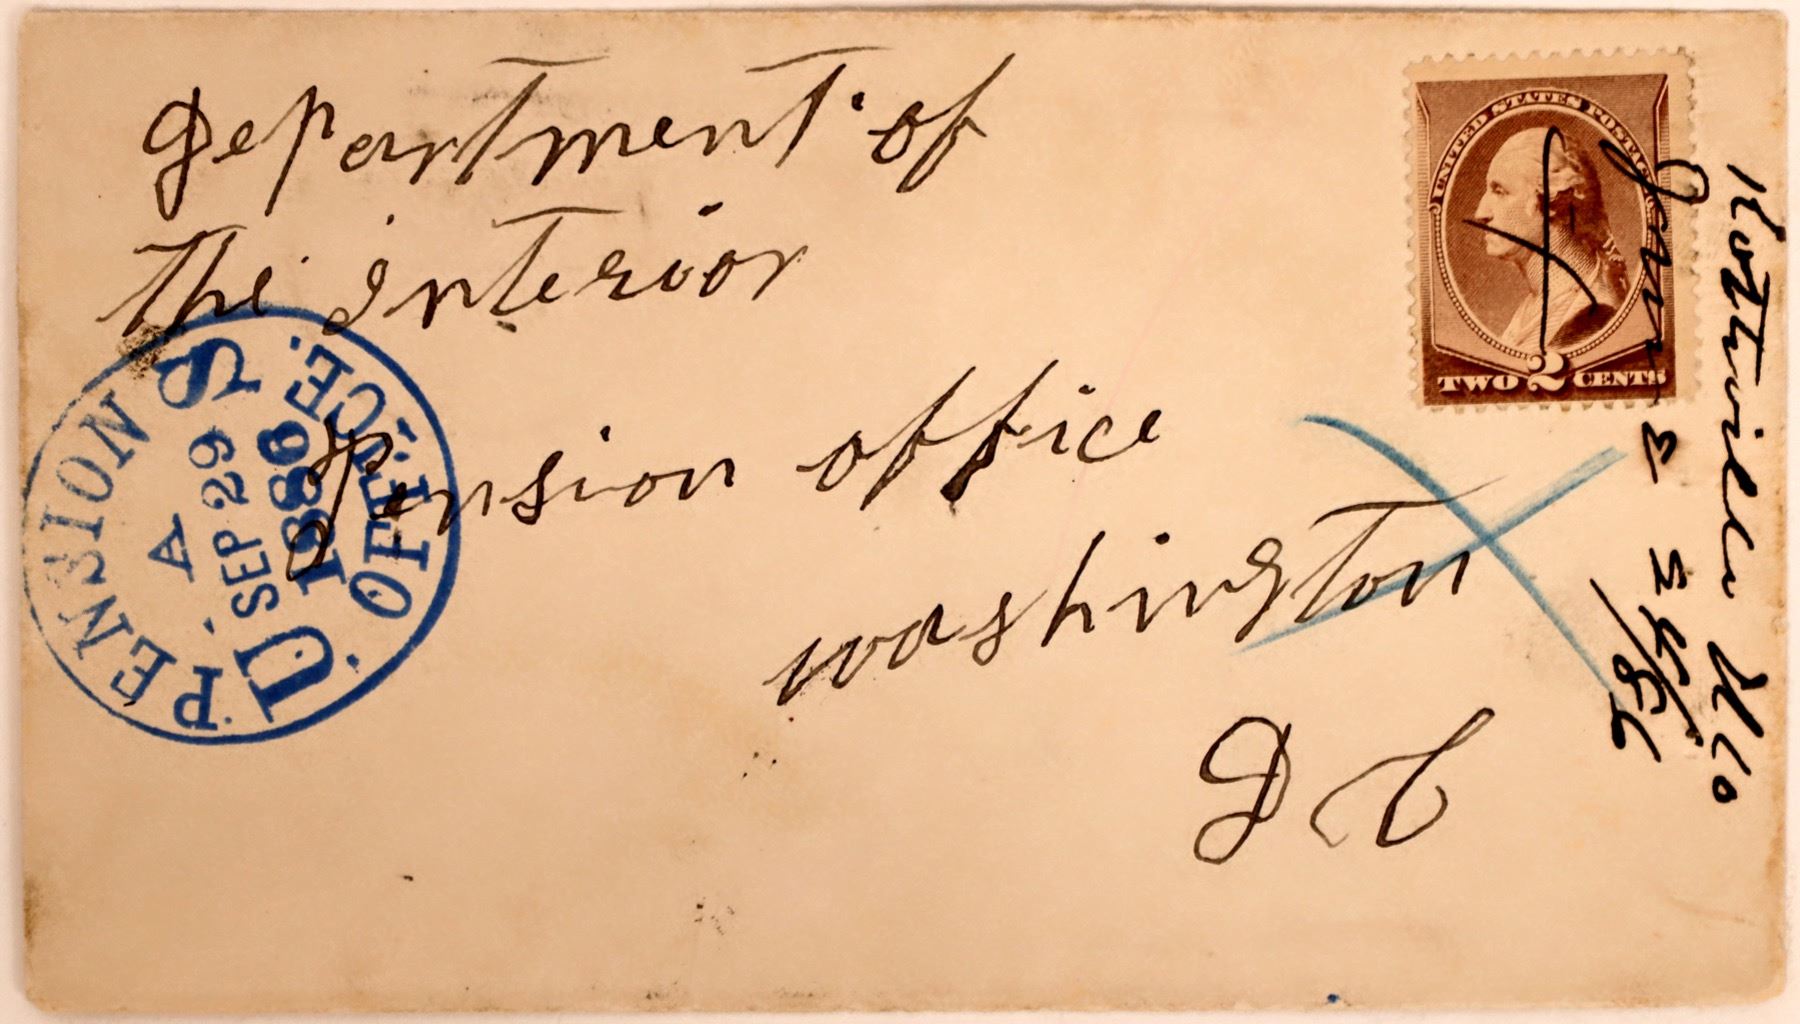 Department of
the Interior
Pension office
Washington
D C
UNITED STATES POSTAGE
2
TWO CENTS
U.S. PENSION OFFICE.
A
SEP 29
1886